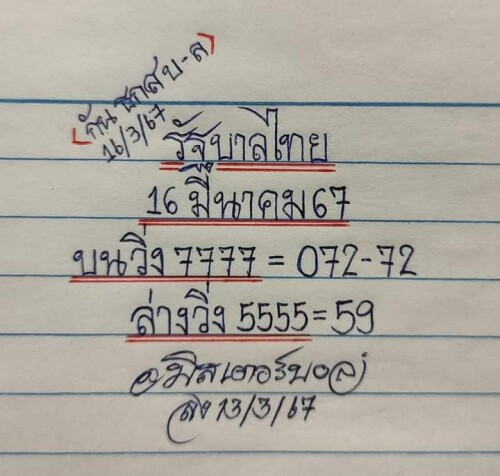 กัน ชกสบ-ล
16/3/67
รัฐบาลไทย
16 มีนาคม 67
บนวิ่ง 7777 = 072-72
ล่างวิ่ง 5555 = 59
มิสเตอร์บอล
ลง 13/3/67